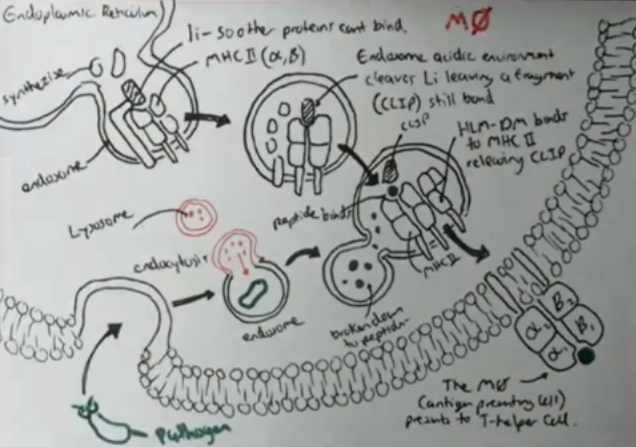 Endoplasmic Reticulum
li - so other proteins cant bind.
MØ
MHC II (α, β)
synthesize
endosome
Endosome acidic environment
cleaves Li leaving a fragment
(CLIP) still bond
CLIP
HLM-DM binds
to MHC II
releasing CLIP
Lysosome
peptide binds
endocytosis
MHC II
endosome
broken down
to peptides
Pathogen
α2
β2
α1
β1
The MØ
(antigen presenting cell)
presents to T-helper cell.